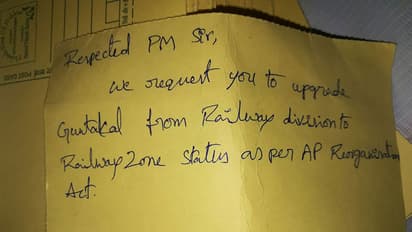 Respected PM Sir,
we request you to upgrade
Guntakal from Railway division to
Railway Zone Status as per AP Reorganisation
Act.
POST CARD